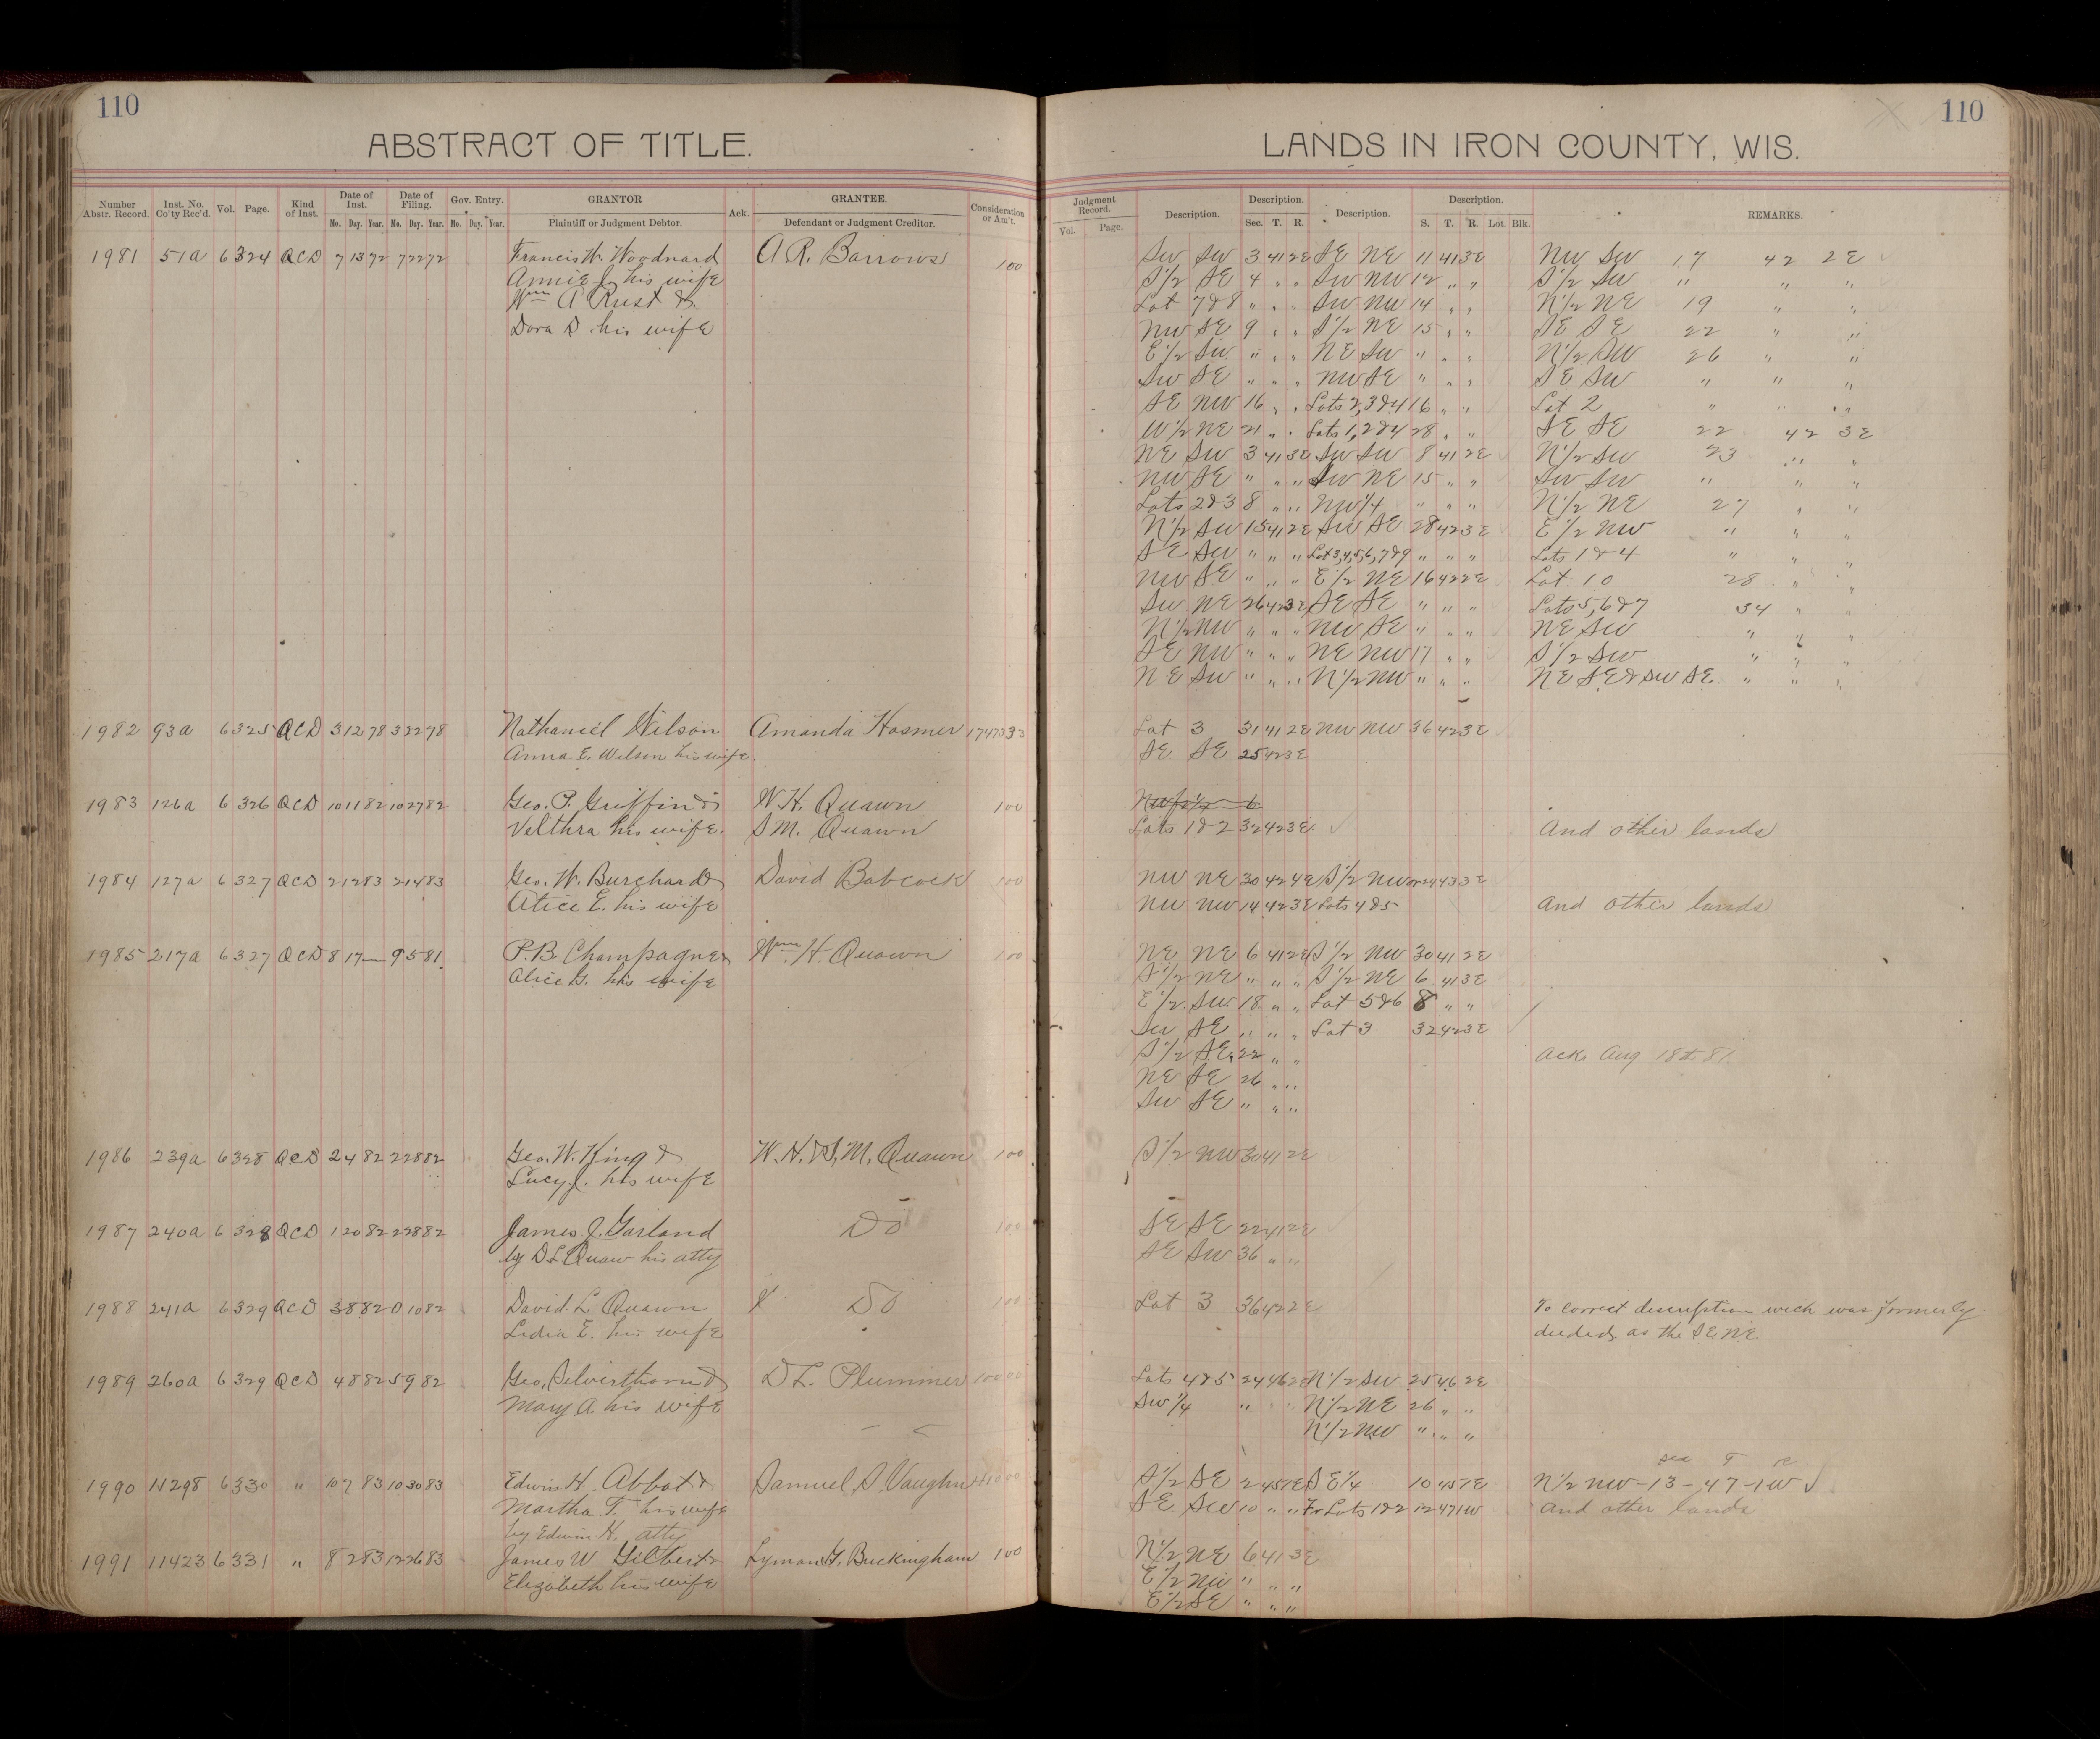 110
ABSTRACT OF TITLE.
Number Abstr. Record. Inst. No. Co'ty Rec'd. Vol. Page. Kind of Inst. Date of Inst. Date of Filing. Gov. Entry. GRANTOR Ack. GRANTEE. Consideration or Am't.
Mo. Day. Year. Mo. Day. Year. Mo. Day. Year. Plaintiff or Judgment Debtor. Defendant or Judgment Creditor.
1981 51a 6 324 QCD 7 13 72 7 22 72 Francis W. Woodward A R. Barrows 100
Annie J. his wife
Wm A Rust &
Dora D his wife
1982 93a 6 325 QCD 3 12 78 3 22 78 Nathaniel Wilson Amanda Hosmer 1747333
Anna E. Wilson his wife
1983 126a 6 326 QCD 10 11 82 10 27 82 Geo. P. Griffin & W.H. Quawn 100
Velthra his wife. S M. Quawn
1984 127a 6 327 QCD 2 12 83 2 14 83 Geo. W. Burchard & David Babcock 100
Alice E. his wife
1985 217a 6 327 QCD 8 17 — 9 5 81 P.B. Champagne & Wm. H. Quawn 100
Alice G. his wife
1986 239a 6 328 QCD 2 4 82 2 28 82 Geo. W. King & W.H. & S.M. Quawn 100
Lucy J. his wife
1987 240a 6 328 QCD 1 20 82 2 28 82 James J. Garland Do 100
by D L Quaw his atty
1988 241a 6 329 QCD 3 8 82 0 10 82 David L. Quawn X Do 100
Lidia E. his wife
1989 260a 6 329 QCD 4 8 82 5 9 82 Geo. Silverthorn & D L. Plummer 10000
Mary A. his wife
1990 11298 6 330 " 10 7 83 10 30 83 Edwin H. Abbot & Samuel S Vaughn
Martha T. his wife
by Edwin H. atty
1991 11423 6 331 " 8 2 83 12 26 83 James W Gilbert & Lyman G. Buckingham 100
Elizabeth his wife
110
LANDS IN IRON COUNTY, WIS.
Judgment Record. Description. Description. Description. Description. REMARKS.
Vol. Page. Sec. T. R. S. T. R. Lot. Blk.
SW SW 3 41 2E SE NE 11 41 3E NW SW 17 42 2E
S1/2 SE 4 " " SW NW 12 " " S1/2 SW " " "
Lot 7&8 " " " SW NW 14 " " N1/2 NE 19 " "
NW SE 9 " " S1/2 NE 15 " " SE SE 22 " "
E1/2 SW " " " NE SW " " " N1/2 SW 26 " "
SW SE " " " NW SE " " " SE SW " " "
SE NW 16 " " Lots 2,3&4 16 " " Lot 2 " " "
W1/2 NE 21 " " Lots 1,2&4 28 " " SE SE 22 42 3E
NE SW 3 41 3E SW SW 8 41 2E N1/2 SW 23 " "
NW SE " " " SW NE 15 " " SW SW " " "
Lots 2&3 8 " " NW1/4 " " " N1/2 NE 27 " "
N1/2 SW 15 41 2E SW SE 28 42 3E E1/2 NW " " "
SE SW " " " Lot 3,4,5,6,7&9 " " " Lots 1&4 " " "
NW SE " " " E1/2 NE 16 42 2E Lot 10 28 " "
SW NE 26 42 3E SE SE " " " Lots 5,6&7 34 " "
N1/2 NW " " " NW SE " " " NE SW " " "
SE NW " " " NE NW 17 " " S1/2 SW " " "
NE SW " " " N1/2 NW " " " NE SE & SW SE " " "
Lot 3 31 41 2E NW NW 36 42 3E
SE SE 25 42 3E
Lots 1&2 32 42 3E And other lands
NW NE 30 42 4E S1/2 NW 43 3E
NW NW 14 42 3E Lots 4&5 And other lands
NE NE 6 41 2E S1/2 NW 30 41 2E
S1/2 NE " " " S1/2 NE 6 41 3E
E1/2 SW 18 " " Lot 5&6 8 " "
SW SE " " " Lot 3 32 42 3E
S1/2 SE 22 " " Ack Aug 18th 81
NE SE 26 " "
SW SE " " "
S1/2 NW 30 41 2E
SE SE 22 41 2E
SE SW 36 " "
Lot 3 36 42 2E To correct description wich was formerly
deeded as the SE NE.
Lots 4&5 24 46 2E N1/2 SW 25 46 2E
SW1/4 " " " N1/2 NE 26 " "
N1/2 NW " " "
sec T R
S1/2 SE 2 45 1E SE1/4 10 45 1E N1/2 NW -13-47-1W
SE SW 10 " " Fr Lots 1&2 12 47 1W And other lands
N1/2 NE 6 41 3E
E1/2 NW " " "
E1/2 SE " " "